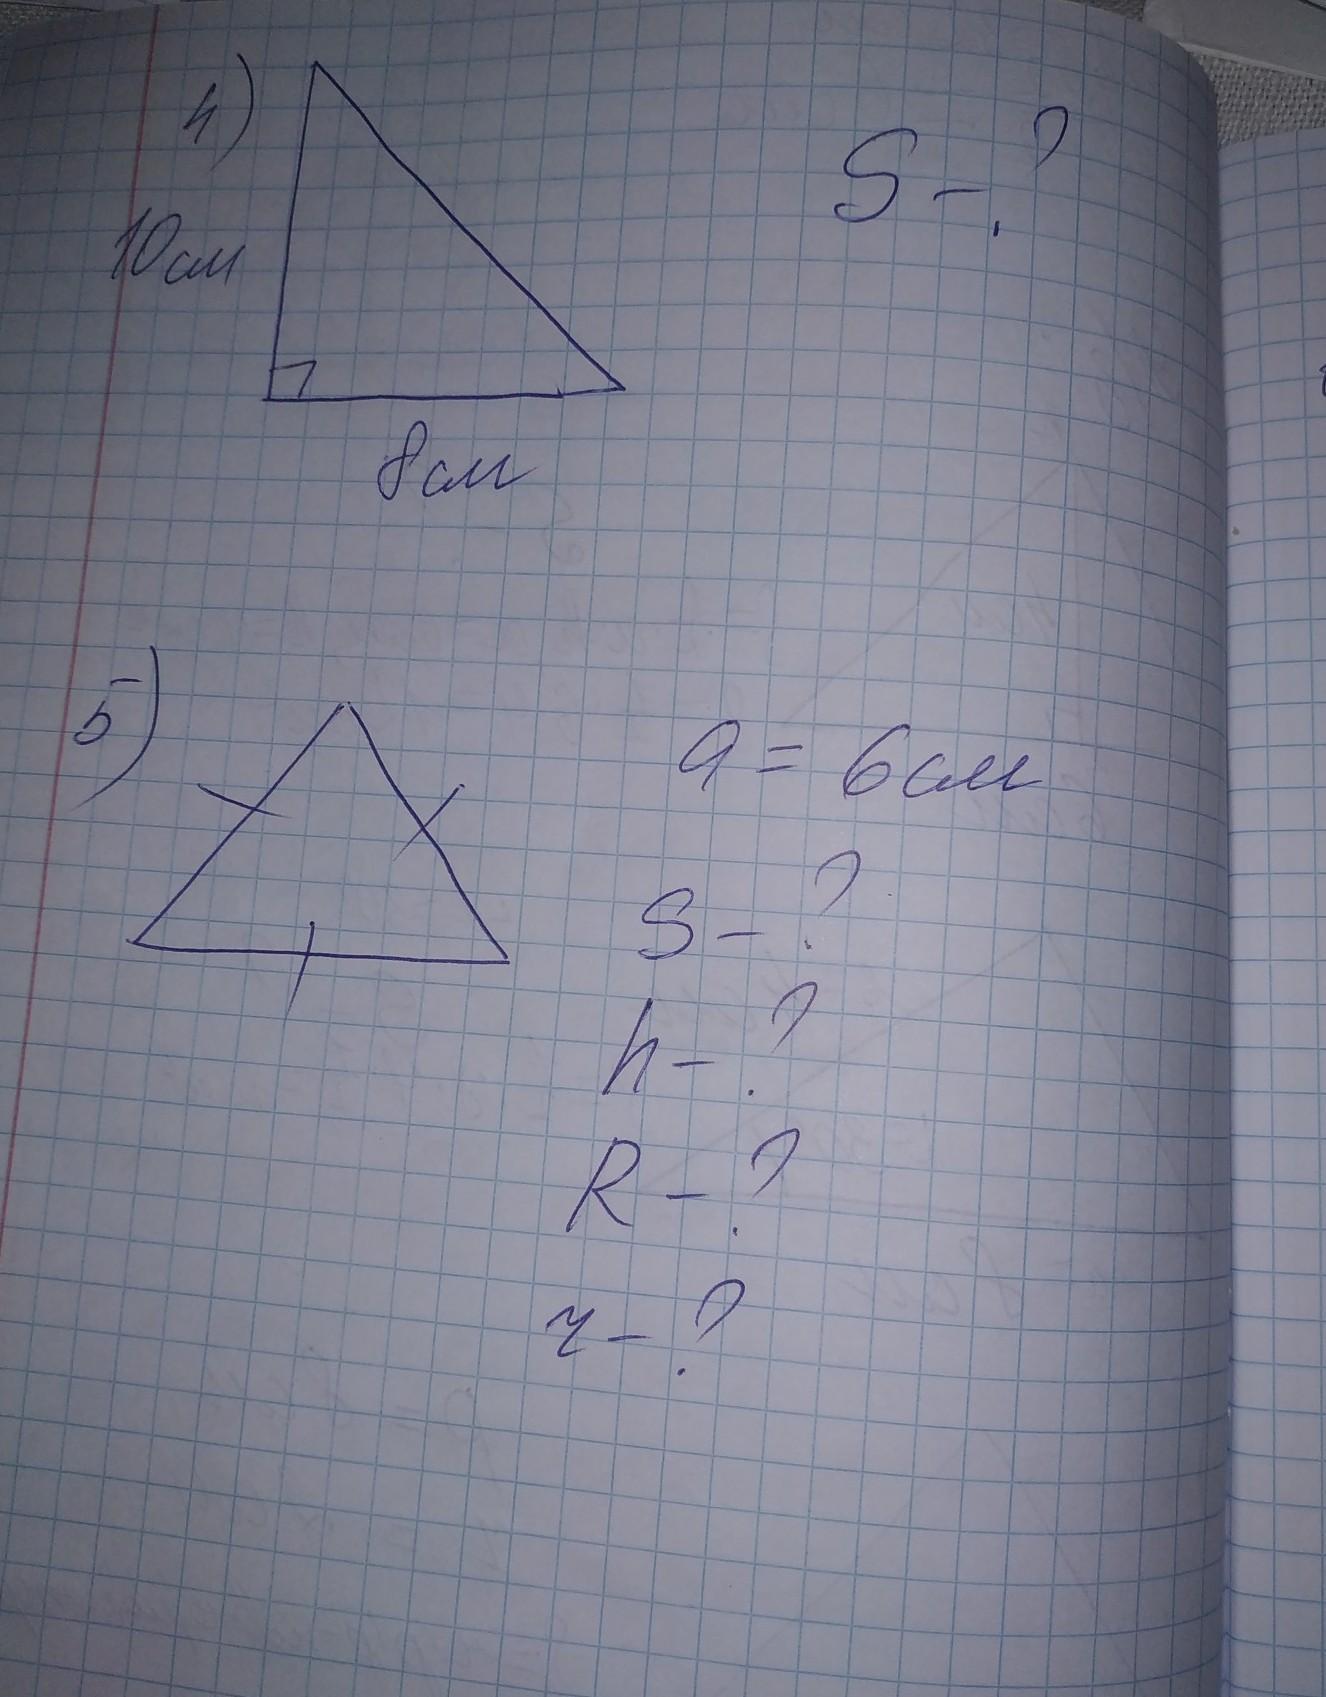 4)
S - ?
10см
8см
5)
a = 6см
S - ?
h - ?
R - ?
r - ?